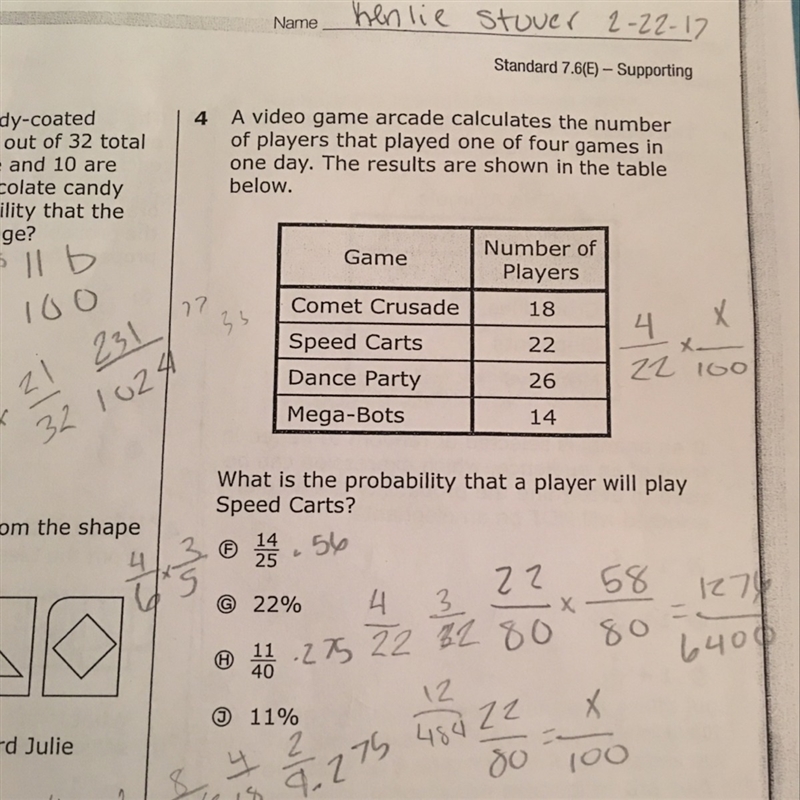 Name Kenlie Stuver 2-22-17
Standard 7.6(E) – Supporting
dy-coated
out of 32 total
and 10 are
colate candy
ility that the
ge?
11 b
100
21/32
231/1024
om the shape
4/6 x 3/5
rd Julie
4 A video game arcade calculates the number
of players that played one of four games in
one day. The results are shown in the table
below.
Game Number of Players
Comet Crusade 18
Speed Carts 22
Dance Party 26
Mega-Bots 14
4/22 x X/100
What is the probability that a player will play
Speed Carts?
F 14/25 .56
G 22%
H 11/40 .275
J 11%
4/22 3/32 22/80 x 58/80 = 1276/6400
12/484 22/80 = X/100
2/9 .275